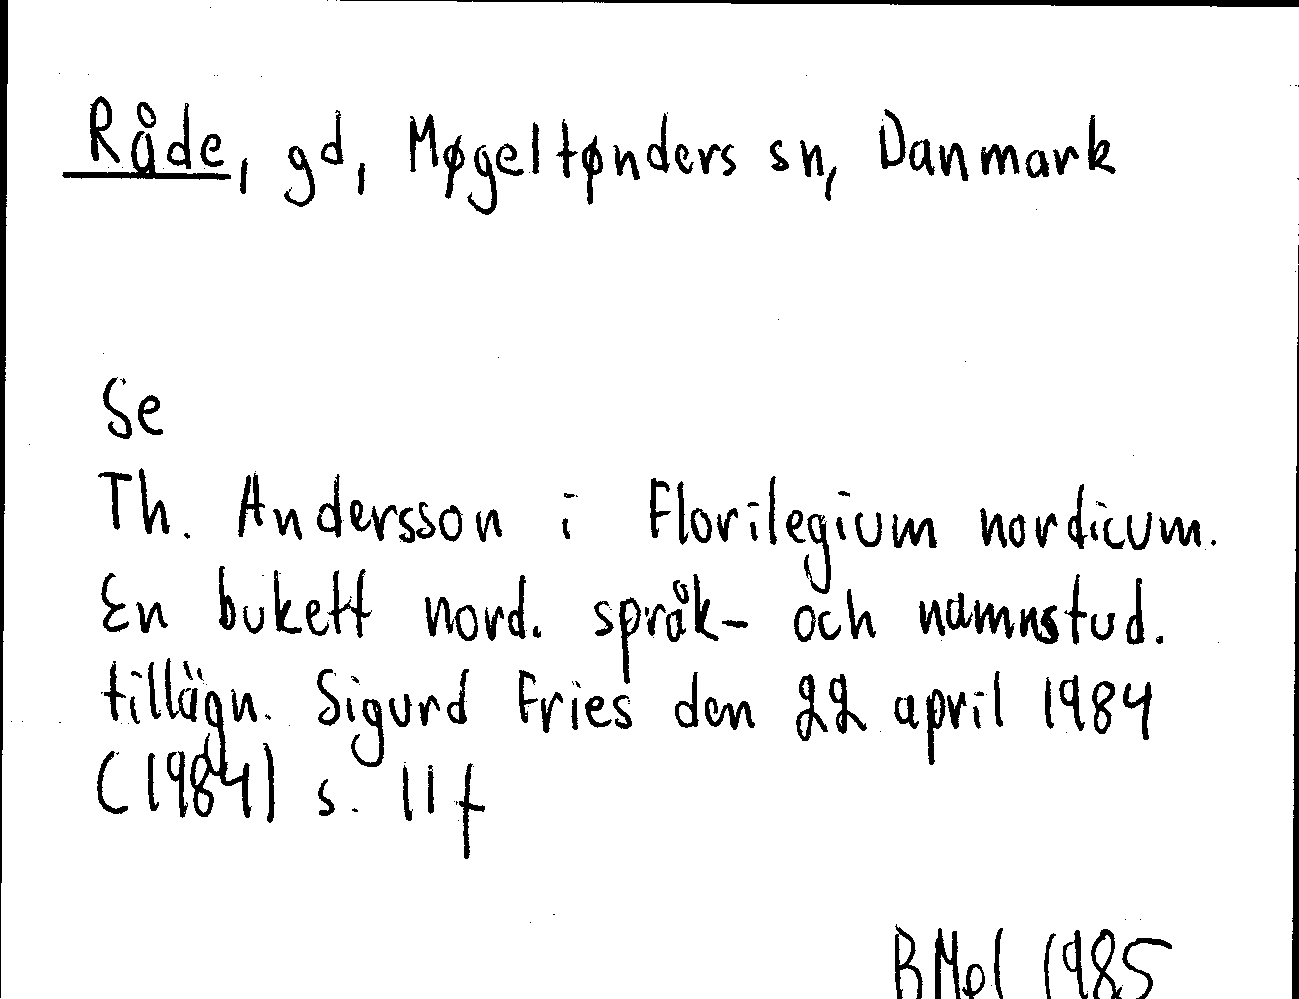 Råde, gd, Møgeltønders sn, Danmark
Se
Th. Andersson i Florilegium nordicum.
En bukett nord. språk- och namnstud.
tillägn. Sigurd Fries den 22 april 1984
(1984) s. 11 f
BMel 1985